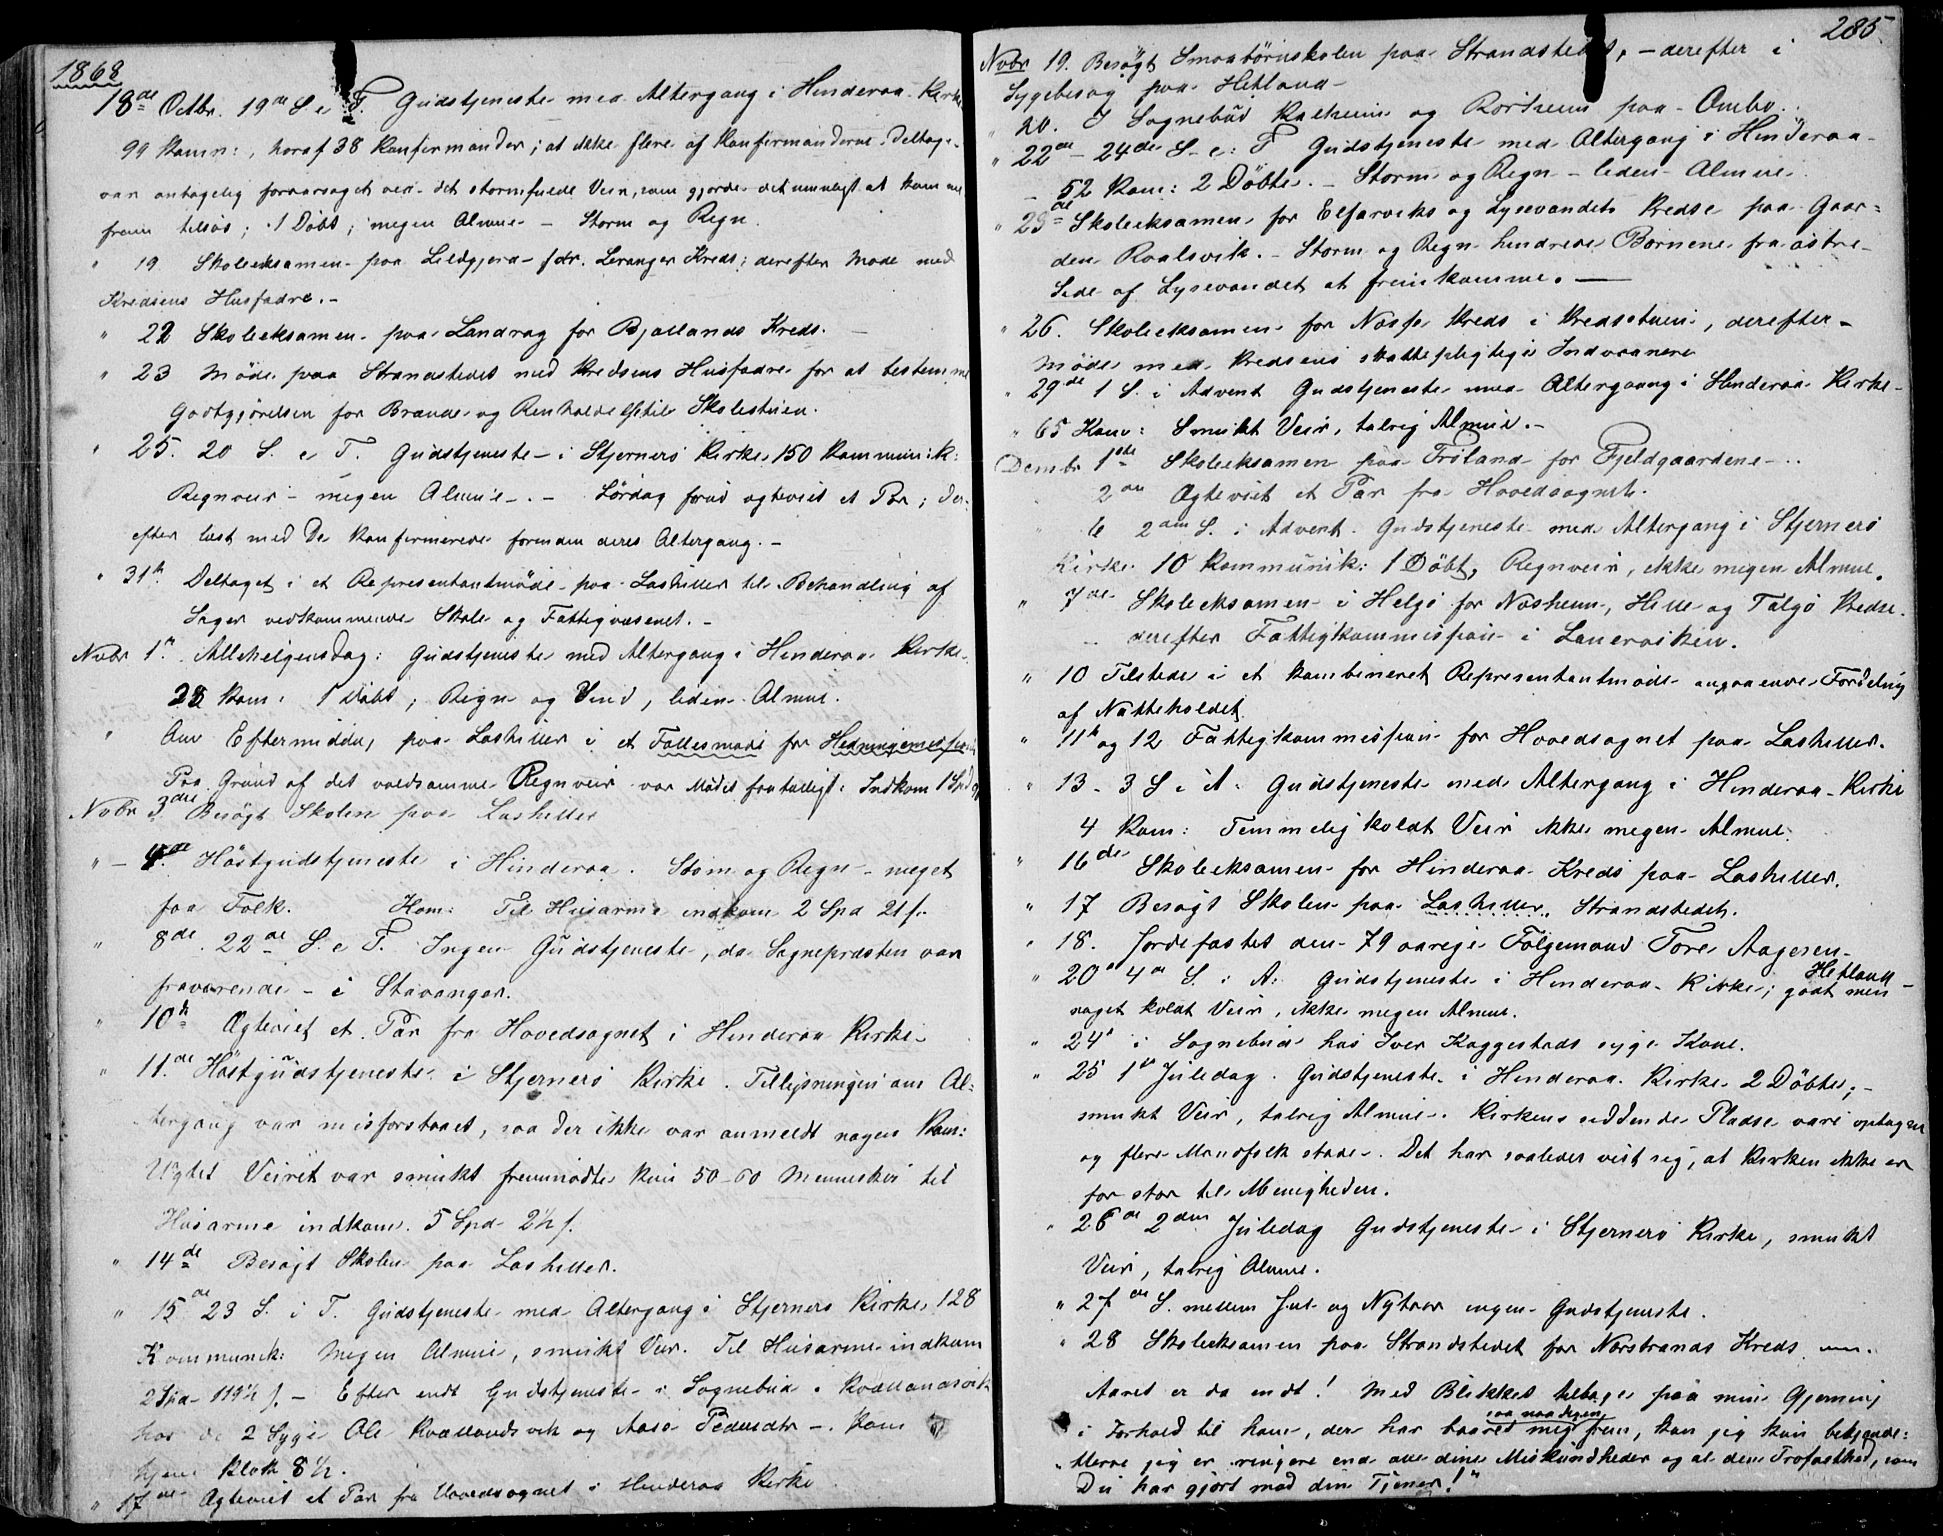 1868
18de Octbr. 19de S. e. T. Gudstjeneste med Altergang i Hinderaa Kirke
99 Komm:, horaf 38 Konfirmander; at ikke flere af Konfirmanderne deltoge
var antagelig foraarsaget ved det stormfulde Veir, som gjorde det umuligt at komme
frem tilsøs; 1 Døbt; megen Almue – Storm og Regn.
" 19 Skoleeksamen paa Leldgjera for Leranger Kreds; derefter Møde med
Kredsens Husfædre. –
" 22 Skoleeksamen paa Landrag for Bjallands Kreds. –
" 23 Møde paa Strandstedet med Kredsens Husfædre for at bestemme
Godtgjørelsen for Brænde og Renholdelse til Skolestuen.
" 25. 20 S. e T. Gudstjeneste i Stjernerø Kirke, 150 Kommunik:
Regnveir – megen Almue – . – Lørdag forud ægteviet et Par; der-
efter læst med De Konfirmerede forinden deres Altergang. –
" 31te Deltaget i et Representantmøde paa Loshiller til Behandling af
Sager vedkommende Skole og Fattigvæsenet. –
Novbr 1te. Allehelgensdag: Gudstjeneste med Altergang i Hinderaa Kirke.
28 Kom: 1 Døbt; Regn og Vind, liden Almue.
" Om Eftermidda, paa Loshiller i et Fællesmøde for Hedningemissionen
Paa Grund af det voldsomme Regnveir var Mødet faatalligt. Indkom 1 Spd
Novbr 3die Besøgt Skolen paa Loshiller
" – 4de Høstgudstjeneste i Hinderaa. Storm og Regn – meget
faa Folk. Kom: Til Husarme indkom 2 Spd 21 s.
" 8de. 22de S. e T. Ingen Gudstjeneste, da Sognepræsten var
fraværende – i Stavanger.
" 10de Ægteviet et Par fra Hovedsognet i Hinderaa Kirke
" 11.de Høstgudstjeneste i Stjernerø Kirke. Tillysningen om Al-
tergang var misforstaaet, saa der ikke var anmeldt nogen Kom:
Uagtet Veiret var smukt fremmødte kun 50–60 Mennesker til
Husarme indkom. 5 Spd 2½ s.
" 14de Besøgt Skolen paa Loshiller.
" 15de 23 S. i T. Gudstjeneste med Altergang i Stjernerø Kirke, 128
Kommunik: Megen Almue, smukt Veir. Til Husarme indkom
2 Spd – 119½ s. – Efter endt Gudstjeneste i Sognebud i Kvællandsvik
hos de 2 Syge Ole Kvællandsvik og Aasa Pedersdtr –. Kom
hjem Klok 8½.
" 17de Ægteviet et Par fra Hovedsognet i Hinderaa Kirke
285
Novbr 19. Besøgt Smaabørnskolen paa Strandstedet, – derefter i
Sygebesøg paa Hetland –
" 20. I Sognebud Kalheim og Rorheim paa Ombo.
" 22de – 24de S. e: T Gudstjeneste med Altergang i Hinderaa
– 52 Kom: 2 Døbte. – Storm og Regn – liden Almue.
" 25de Skoleeksamen for Elfarviks og Lysevandets Kredse paa Gaar-
den Roalsvik. – Storm og Regn hindrede Børnene fra østre
Side af Lysevandet at fremkomme. —
" 26. Skoleeksamen for Næss Kreds i Kredsstuen, derefter
Møde med Kredsens skattepligtige Indvaanere
" 29de 1 S. i Advent Gudstjeneste med Altergang i Hinderaa Kirke
" 65 Kom: Smukt Veir, talrig Almue. –
Decmbr 1ste Skoleeksamen paa Frøland for Fjeldgaardene – .
2den Ægteviet et Par fra Hovedsognet.
" 6 2den S. i Advent. Gudstjeneste med Altergang i Stjernerø
Kirke. 10 Kommunik: 1 Døbt, Regnveir, ikke megen Almue.
" 7de Skoleeksamen i Helgø for Næsheim, Hille og Talgø Kredse.
derefter Fattigkommission i Lanervikken.
" 10 Tilstede i et kombineret Representantmøde angaaende Fordeling
af Natteholdet.
" 11te og 12 Fattigkommission for Hovedsognet paa Loshiller.
" 13 – 3 S i A. Gudstjeneste med Altergang i Hinderaa Kirke
4 Kom: Temmelig koldt Veir ikke megen Almue.
" 16de Skoleeksamen for Hinderaa Kreds paa Loshiller.
" 17 Besøgt Skolen paa Loshiller. Strandstedet.
" 18. Jordfæstet den 79 aarige Følgemand Tore Aagesen
Hetland
" 20de 4de S. i A: Gudstjeneste i Hinderaa Kirke; godt men
noget koldt Veir, ikke megen Almue.
" 24de i Sognebud hos Iver Kaggestads syge Kone.
" 25 1ste Juledag. Gudstjeneste i Hinderaa Kirke. 2 Døbte; –
smukt Veir, talrig Almue. Kirkens siddende Pladse vare optagne
og flere Mandfolk stode. Det har saaledes vist sig, at Kirken ikke er
for stor til Menigheden.
" 26de 2den Juledag Gudstjeneste i Stjernerø Kirke, smukt
Veir, talrig Almue.
" 27de S. mellem Jul og Nytaar ingen Gudstjeneste.
" 28 Skoleeksamen paa Strandstedet for Norstrands Kreds
Aaret er da endt! Med Blikket tilbage paa min Gjerning
saa naadigen
i Forhold til ham, der har baaret mig frem, kan jeg kun bekjende:
"Herre jeg er ringere end alle dine Miskundheder og al den Trofasthed, som
Du har gjort mod din Tjener!"